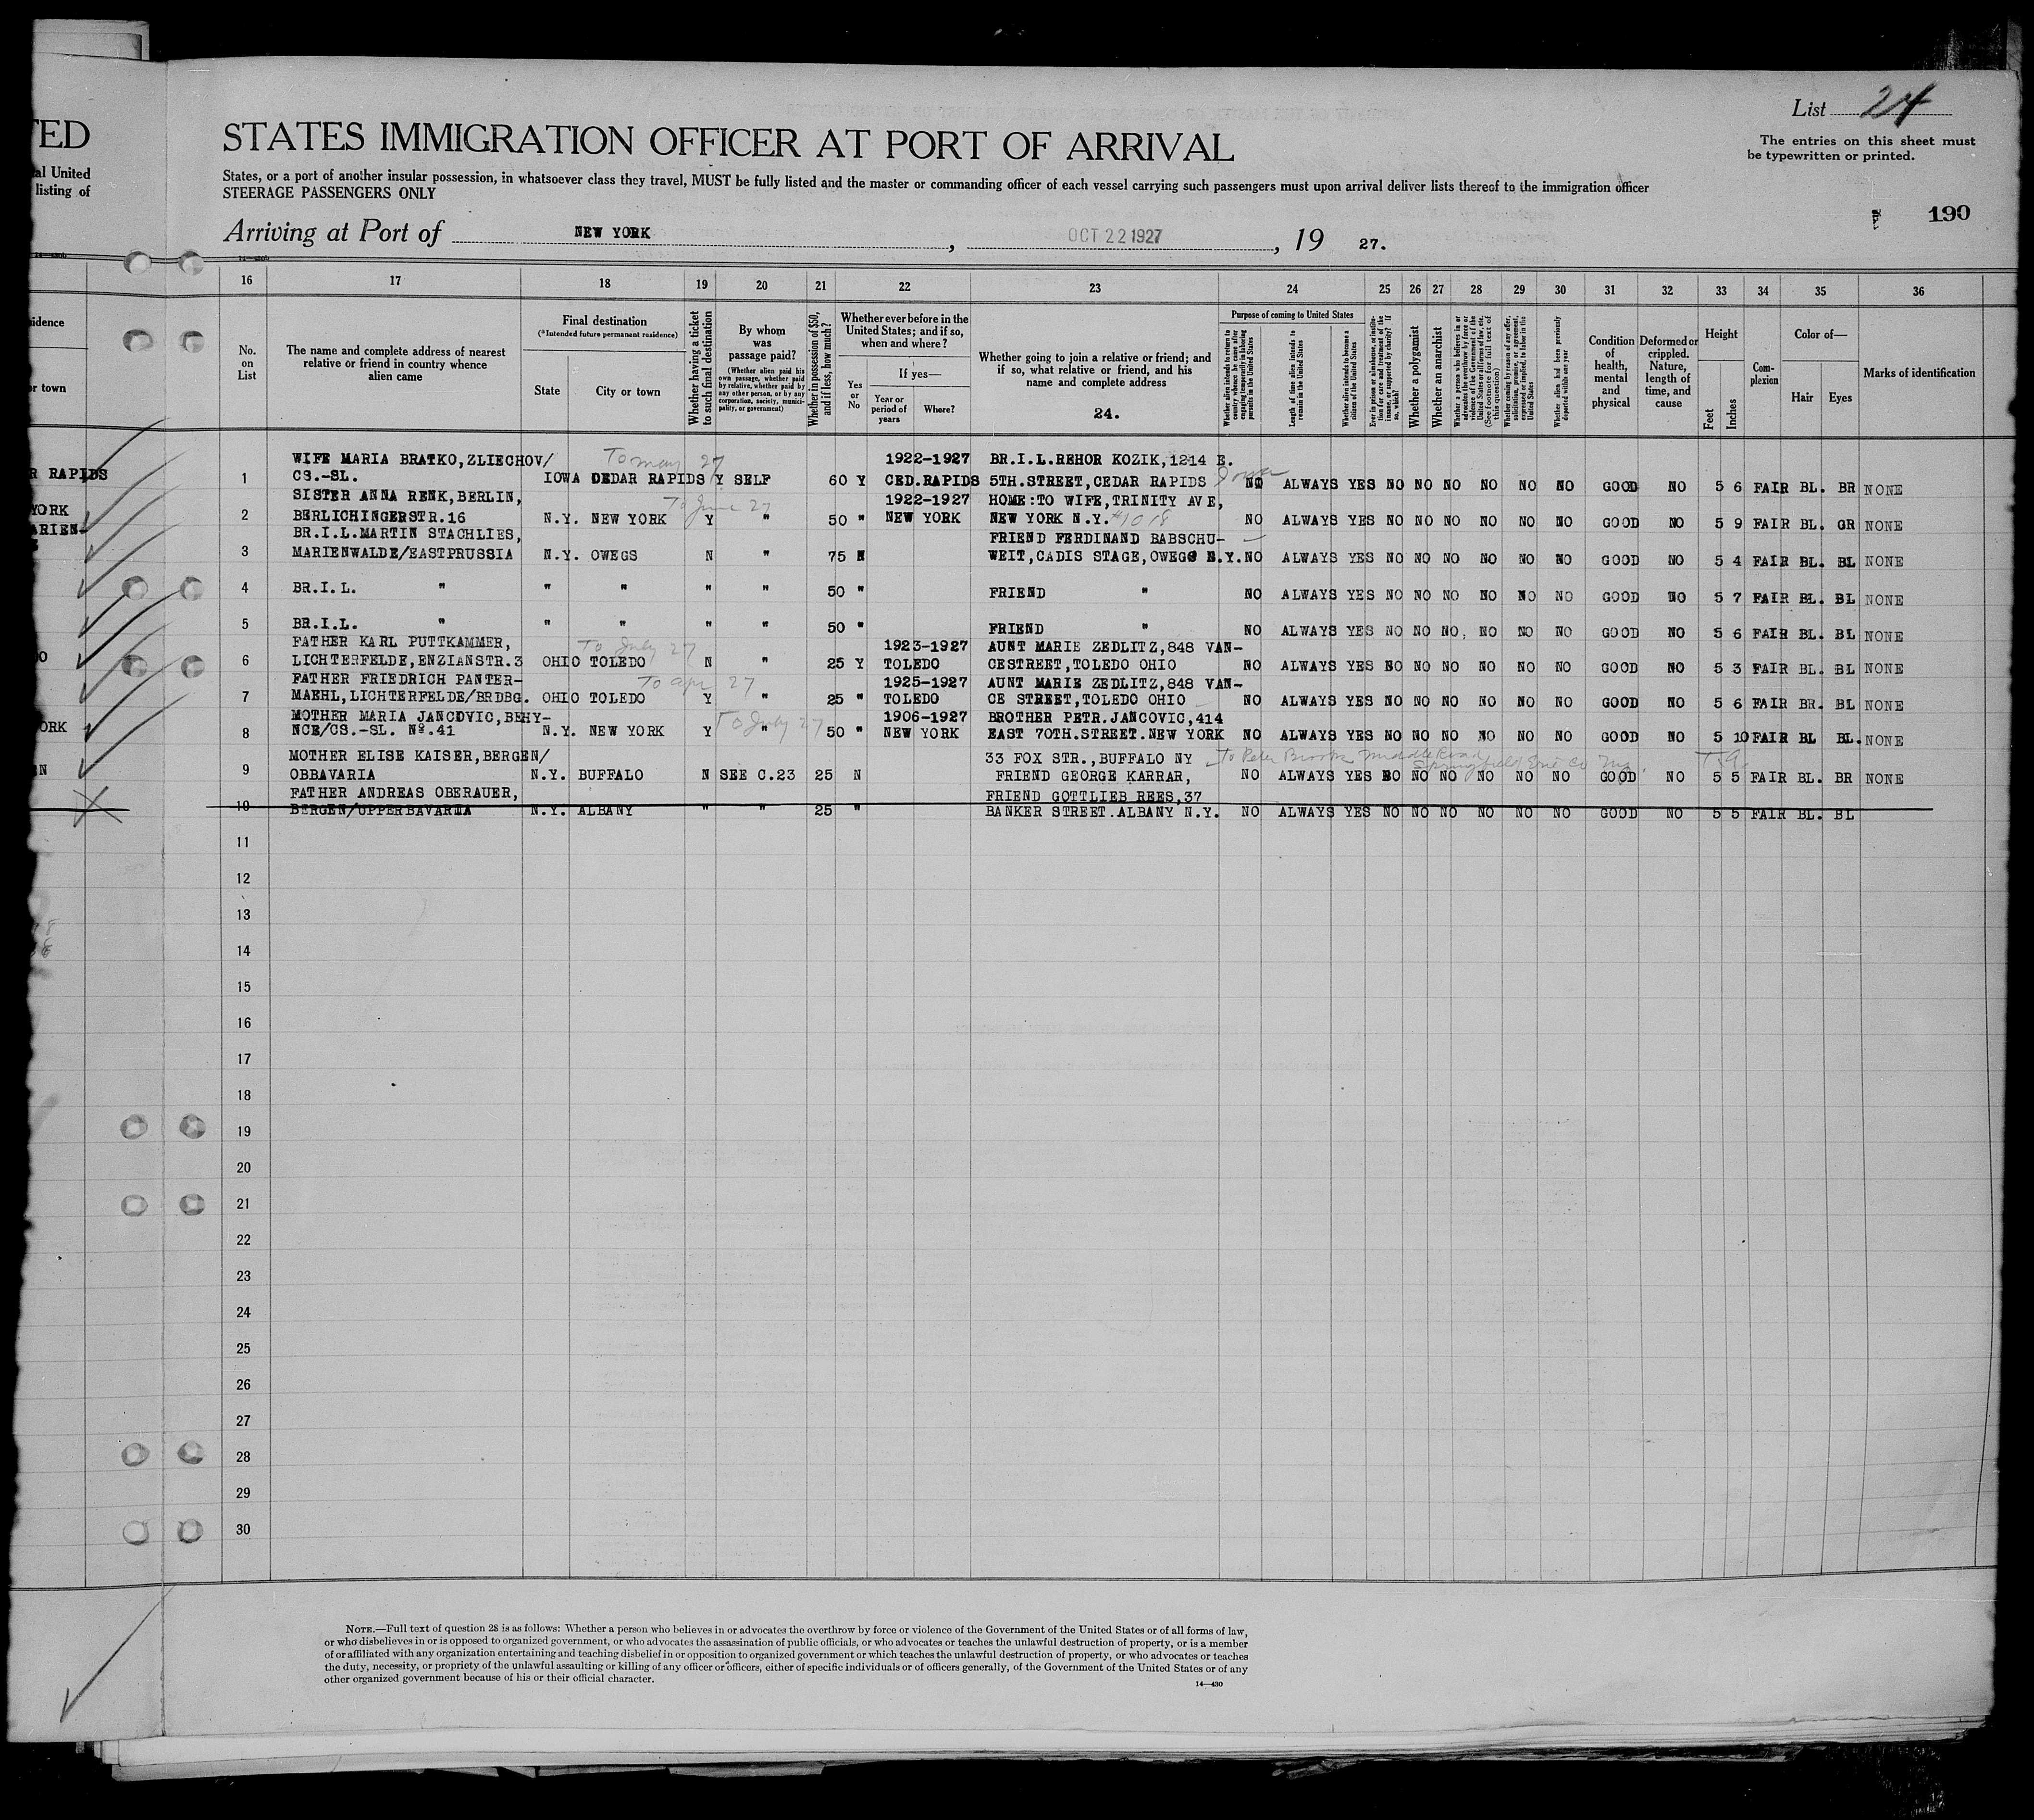 TED
al United
listing of
List 24
STATES IMMIGRATION OFFICER AT PORT OF ARRIVAL
The entries on this sheet must
be typewritten or printed.
States, or a port of another insular possession, in whatsoever class they travel, MUST be fully listed and the master or commanding officer of each vessel carrying such passengers must upon arrival deliver lists thereof to the immigration officer
STEERAGE PASSENGERS ONLY
190
Arriving at Port of NEW YORK, OCT 22 1927, 19 27.
16 17 18 19 20 21 22 23 24 25 26 27 28 29 30 31 32 33 34 35 36
idence
or town
No. on List
The name and complete address of nearest relative or friend in country whence alien came
Final destination
(*Intended future permanent residence)
State
City or town
Whether having a ticket to such final destination
By whom was passage paid?
(Whether alien paid his own passage, whether paid by relative, whether paid by any other person, or by any corporation, society, municipality, or government)
Whether in possession of $50, and if less, how much?
Whether ever before in the United States; and if so, when and where?
Yes or No
If yes—
Year or period of years
Where?
Whether going to join a relative or friend; and if so, what relative or friend, and his name and complete address
24.
Purpose of coming to United States
Whether alien intends to return to country whence he came after engaging temporarily in laboring pursuits in the United States
Length of time alien intends to remain in the United States
Whether alien intends to become a citizen of the United States
Ever in prison or almshouse, or institution for care and treatment of the insane, or supported by charity? If so, which?
Whether a polygamist
Whether an anarchist
Whether a person who believes in or advocates the overthrow by force or violence of the Government of the United States or all forms of law, etc. (See footnote for full text of this question)
Whether coming by reason of any offer, solicitation, promise, or agreement, expressed or implied, to labor in the United States
Whether alien had been previously deported within one year
Condition of health, mental and physical
Deformed or crippled. Nature, length of time, and cause
Height
Feet
Inches
Complexion
Color of—
Hair
Eyes
Marks of identification
R RAPIDS
YORK
ARIEN-
ORK
WIFE MARIA BRATKO, ZLIECHOV/ To may 27 1922-1927 BR.I.L.REHOR KOZIK, 1214 E.
1 CS.-SL. IOWA DEDAR RAPIDS Y SELF 60 Y CED.RAPIDS 5TH.STREET, CEDAR RAPIDS Iowa NO ALWAYS YES NO NO NO NO NO NO GOOD NO 5 6 FAIR BL. BR NONE
SISTER ANNA RENK, BERLIN, To June 27 1922-1927 HOME:TO WIFE, TRINITY AVE,
2 BERLICHINGERSTR.16 N.Y. NEW YORK Y " 50 " NEW YORK NEW YORK N.Y. #1018 NO ALWAYS YES NO NO NO NO NO NO GOOD NO 5 9 FAIR BL. GR NONE
BR.I.L.MARTIN STACHLIES, FRIEND FERDINAND BABSCHU-
3 MARIENWALDE/EASTPRUSSIA N.Y. OWEGS N " 75 N WEIT, CADIS STAGE, OWEGO N.Y. NO ALWAYS YES NO NO NO NO NO NO GOOD NO 5 4 FAIR BL. BL NONE
4 BR.I.L. " " " " " 50 " FRIEND " NO ALWAYS YES NO NO NO NO NO NO GOOD NO 5 7 FAIR BL. BL NONE
5 BR.I.L. " " " " " 50 " FRIEND " NO ALWAYS YES NO NO NO NO NO NO GOOD NO 5 6 FAIR BL. BL NONE
FATHER KARL PUTTKAMMER, To July 27 1923-1927 AUNT MARIE ZEDLITZ, 848 VAN-
6 LICHTERFELDE, ENZIANSTR.3 OHIO TOLEDO N " 25 Y TOLEDO CESTREET, TOLEDO OHIO NO ALWAYS YES NO NO NO NO NO NO GOOD NO 5 3 FAIR BL. BL NONE
FATHER FRIEDRICH PANTER- To apr 27 1925-1927 AUNT MARIE ZEDLITZ, 848 VAN-
7 MAEHL, LICHTERFELDE/BRDBG. OHIO TOLEDO Y " 25 " TOLEDO CE STREET, TOLEDO OHIO NO ALWAYS YES NO NO NO NO NO NO GOOD NO 5 6 FAIR BR. BL NONE
MOTHER MARIA JANCOVIC, BEHY- To July 27 1906-1927 BROTHER PETR.JANCOVIC, 414
8 NCE/CS.-SL. Nº.41 N.Y. NEW YORK Y " 50 " NEW YORK EAST 70TH.STREET.NEW YORK NO ALWAYS YES NO NO NO NO NO NO GOOD NO 5 10 FAIR BL BL. NONE
MOTHER ELISE KAISER, BERGEN/ 33 FOX STR., BUFFALO NY To Peter Brooks Middle Road Springfield Erie Co
9 OBBAVARIA N.Y. BUFFALO N SEE C.23 25 N FRIEND GEORGE KARRAR, NO ALWAYS YES NO NO NO NO NO NO GOOD NO 5 5 FAIR BL. BR NONE
FATHER ANDREAS OBERAUER, FRIEND GOTTLIEB REES, 37
10 BERGEN/UPPERBAVARIA N.Y. ALBANY " " 25 " BANKER STREET.ALBANY N.Y. NO ALWAYS YES NO NO NO NO NO NO GOOD NO 5 5 FAIR BL. BL
11
12
13
14
15
16
17
18
19
20
21
22
23
24
25
26
27
28
29
30
NOTE.—Full text of question 28 is as follows: Whether a person who believes in or advocates the overthrow by force or violence of the Government of the United States or of all forms of law,
or who disbelieves in or is opposed to organized government, or who advocates the assassination of public officials, or who advocates or teaches the unlawful destruction of property, or is a member
of or affiliated with any organization entertaining and teaching disbelief in or opposition to organized government or which teaches the unlawful destruction of property, or who advocates or teaches
the duty, necessity, or propriety of the unlawful assaulting or killing of any officer or officers, either of specific individuals or of officers generally, of the Government of the United States or of any
other organized government because of his or their official character.
14—430